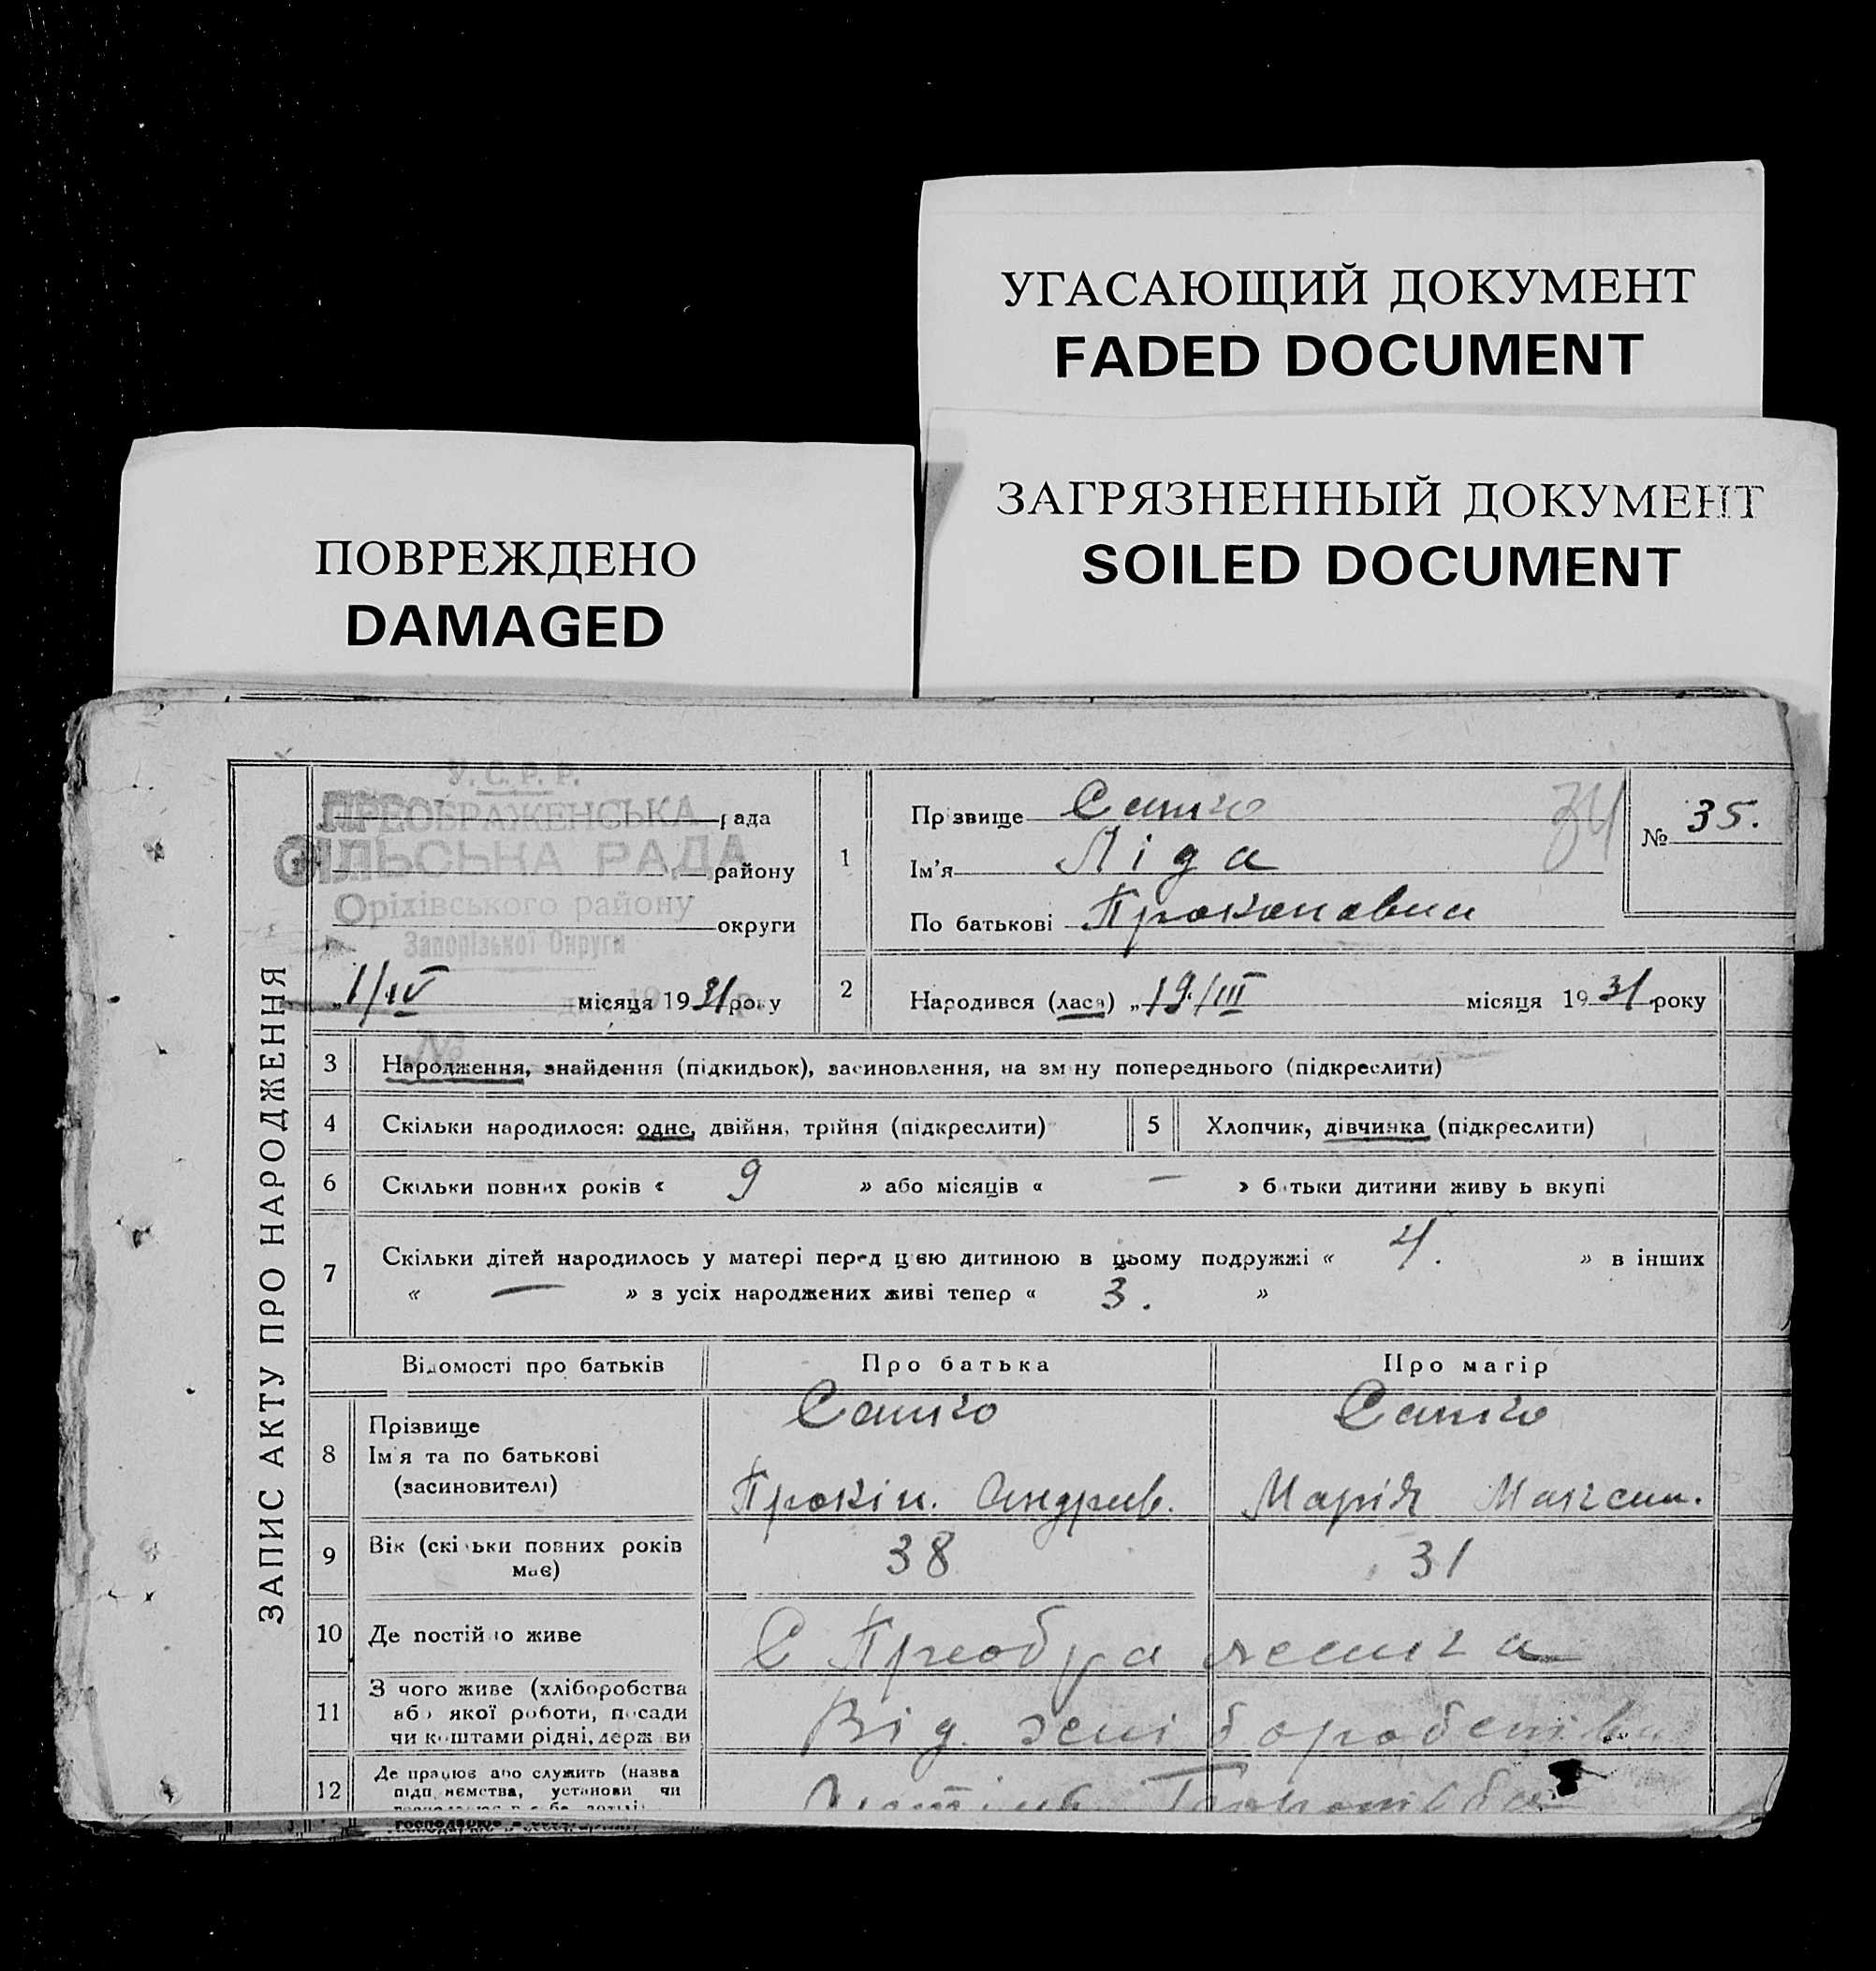 УГАСАЮЩИЙ ДОКУМЕНТ
FADED DOCUMENT
ЗАГРЯЗНЕННЫЙ ДОКУМЕНТ
SOILED DOCUMENT
ПОВРЕЖДЕНО
DAMAGED
ЗАПИС АКТУ ПРО НАРОДЖЕННЯ
У.С.Р.Р.
ПРЕОБРАЖЕНСЬКА рада
СІЛЬСЬКА РАДА району
Оріхівського району
округи
Запорізької Округи
„1/IV місяця 1931 року
№
1
Прізвище Сашко
34
№ 35.
Ім'я Ліда
По батькові
2 Народився (лася) „19/III місяця 1931 року
3 Народження, знайдення (підкидьок), засиновлення, на зміну попереднього (підкреслити)
4 Скільки народилося: одне, двійня, трійня (підкреслити) 5 Хлопчик, дівчинка (підкреслити)
6 Скільки повних років « 9 » або місяців « — » батьки дитини живуть вкупі
7 Скільки дітей народилось у матері перед цією дитиною в цьому подружжі « 4. » в інших
« — » з усіх народжених живі тепер « 3. »
Відомості про батьків Про батька Про матір
8 Прізвище Сашко Сашко
Ім'я та по батькові
(засиновителі) Прокіп. Андрив. Марія Максим.
9 Вік (скільки повних років
має) 38 31
10 Де постійно живе С Преображенка
11 З чого живе (хліборобства
або якої роботи, посади
чи коштами рідні, держави Від
12 Де працює або служить (назва
підприємства, установи чи